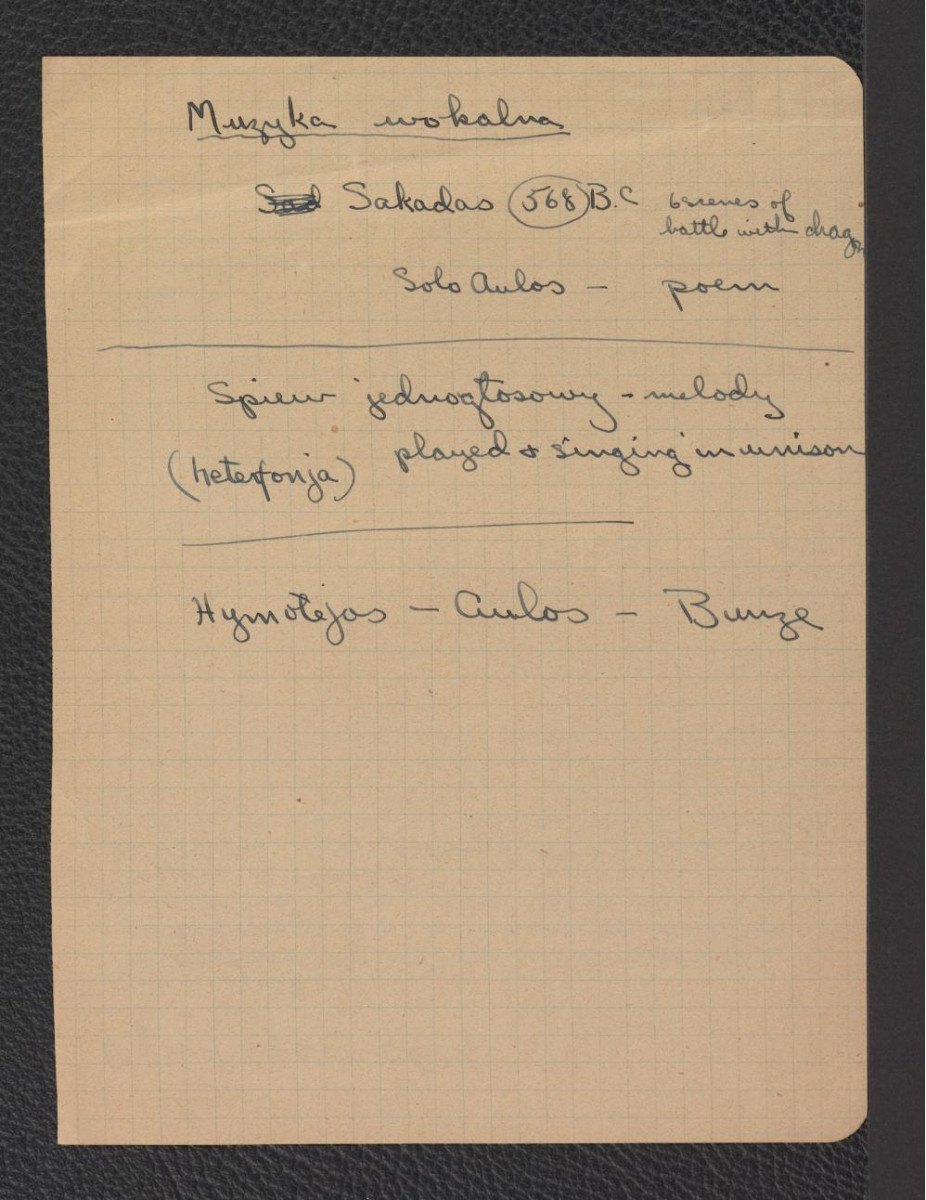 Muzyka wokalna
Sakadas 568 B.C 6 scenes of
battle with dragon
Solo Aulos – poem
Spiew jednogłosowy - melody
played & singing in unison
(heterfonja)
Hymotejos – Aulos – Bunze